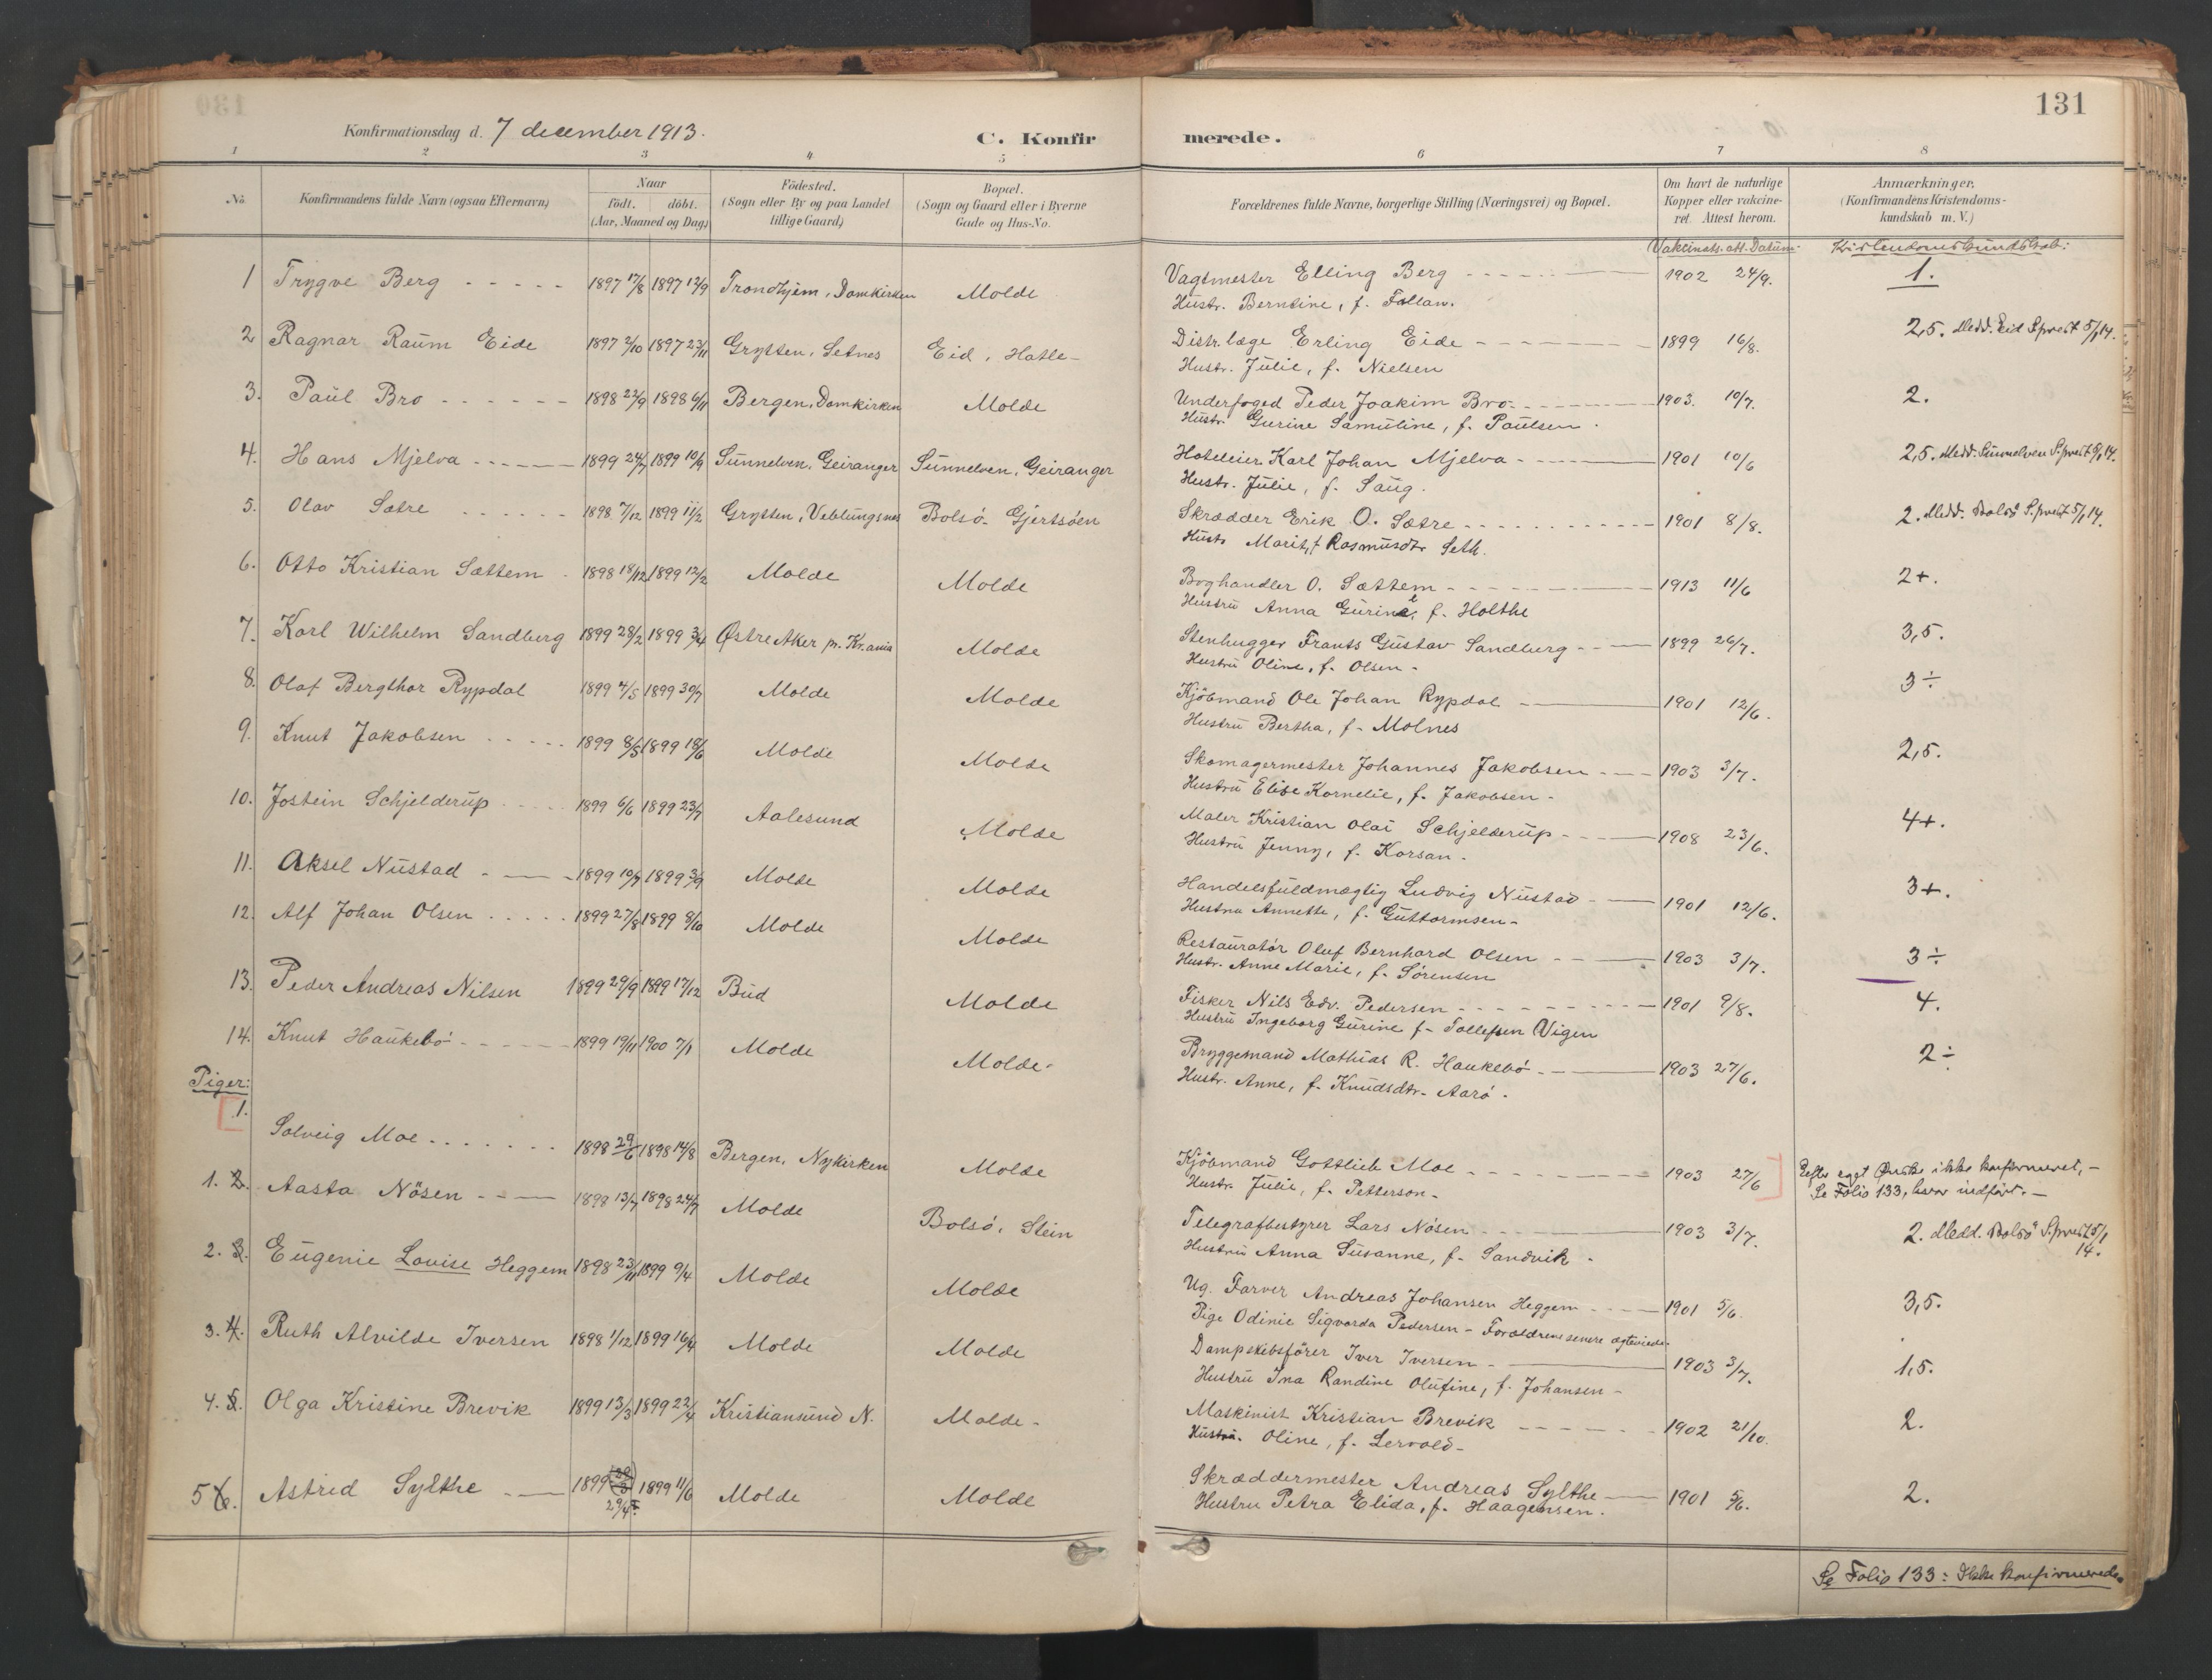 131
Konfirmationsdag d. 7 december 1913.
C. Konfirmerede.
1 2 3 4 5 6 7 8
No. Konfirmandens fulde Navn (ogsaa Efternavn) Naar födt. döbt. (Aar, Maaned og Dag) Födested. (Sogn eller By og paa Landet tillige Gaard) Bopæl. (Sogn og Gaard eller i Byerne Gade og Hus-No. Forældrenes fulde Navne, borgerlige Stilling (Næringsvei) og Bopæl. Om havt de naturlige Kopper eller vakcineret. Attest herom. Anmærkninger. (Konfirmandens Kristendomskundskab m. V.)
Vakcinats. att. Datum. Kristendomskundskab:
1 Trygve Berg 1897 17/8 1897 12/9 Trondhjem, Domkirken Molde Vagtmester Elling Berg 1902 24/9. 1.
Hustr. Berntine, f. Follan.
2 Ragnar Raum Eide 1897 2/10 1897 23/11 Grytten, Setnes Eid, Hatle- Distr. læge Erling Eide 1899 16/8. 2,5. Medd. Eid S.prest 5/1 14.
Hustr. Julie, f. Nielsen
3. Paul Bro 1898 22/9 1898 6/11 Bergen, Domkirken Molde Underfoged Peder Joakim Bro. 1903. 10/7. 2.
Hustr. Gurine Samuline, f. Paulsen.
4. Hans Mjelva 1899 24/7 1899 10/9 Sunnelven, Geiranger Sunnelven, Geiranger Hoteleier Karl Johan Mjelva 1901 10/6 2,5. Medd. Sunnelven S.prest 5/1 14.
Hustr. Julie, f. Saug.
5. Olav Sætre 1898 7/12 1899 11/2 Grytten, Veblungsnes Bolsö- Gjertsöen Skrædder Erik O. Sætre 1901 8/8. 2. Medd. Bolsö S.prest 5/1 14.
Hustr. Marit, f. Rasmusdtr. Seth.
6. Otto Kristian Sættem 1898 18/12 1899 12/2 Molde Molde Boghandler O. Sættem 1913 11/6 2+.
Hustru Anna Gurine, f. Holthe
7. Karl Wilhelm Sandberg 1899 28/2 1899 3/4 Østre Aker pr. Kr.ania Molde Stenhugger Frants Gustav Sandberg 1899 26/7. 3,5.
Hustru Oline, f. Olsen-
8. Olaf Bergthor Rypdal 1899 4/5 1899 30/7 Molde Molde Kjöbmand Ole Johan Rypdal 1901 12/6. 3÷
Hustru Bertha, f. Molnes
9. Knut Jakobsen 1899 8/5 1899 18/6 Molde Molde Skomagermester Johannes Jakobsen 1903 3/7. 2,5.
Hustru Elise Kornelie, f. Jakobsen-
10. Jostein Schjelderup 1899 6/6 1899 23/7 Aalesund Molde Maler Kristian Olai Schjelderup 1908 23/6. 4+.
Hustru Jenny, f. Korsan.
11. Aksel Nustad 1899 10/7 1899 3/9 Molde Molde Handelsfuldmægtig Ludvig Nustad 1901 12/6. 3+.
Hustru Annette, f. Guttormsen-
12. Alf Johan Olsen 1899 27/8 1899 8/10 Molde Molde Restauratör Oluf Bernhard Olsen 1903 3/7. 3÷
Hustr. Anne Marie, f. Sörensen
13. Peder Andreas Nilsen 1899 29/9 1899 17/12 Bud Molde Fisker Nils Edv. Pedersen 1901 9/8. 4.
Hustru Ingeborg Gurine f- Tollefsen Vigen
14. Knut Haukebö 1899 19/11 1900 7/1 Molde Molde- Bryggemand Mathias R. Haukebö 1903 27/6. 2÷
Hustr. Anne, f. Knudsdtr. Aarö.
Piger:
1. Solveig Moe 1898 29/6 1898 14/8 Bergen, Nykirken Molde Kjöbmand Gottlieb Moe 1903 27/6 Efter eget Ønske ikke konfirmeret,-
Hustr. Julie, f. Petterson- Se Folio 133, hvor indfört.-
1. 2. Aasta Nösen 1898 13/7 1898 24/7 Molde Bolsö, Stein Telegrafbestyrer Lars Nösen 1903 3/7. 2. Medd. Bolsö S.prest 5/1 14.
Hustru Anna Susanne, f. Sandvik-
2. 3. Eugenie Lovise Heggem 1898 23/11 1899 9/4 Molde Molde Ug. Farver Andreas Johansen Heggem 1901 5/6. 3,5.
Pige Odinie Sigvarda Pedersen- Forældrene senere ægteviede-
3. 4. Ruth Alvilde Iversen 1898 1/12 1899 16/4 Molde Molde Dampskibsförer Iver Iversen 1903 3/7. 1,5.
Hustru Ina Randine Olufine, f. Johansen-
4. 5. Olga Kristine Brevik 1899 13/3 1899 22/4 Kristiansund N. Molde- Maskinist Kristian Brevik 1902 21/10. 2.
Hustru. Oline, f. Lervold-
5 6. Astrid Sylthe 1899 29/4 1899 11/6 Molde Molde Skræddermester Andreas Sylthe 1901 5/6. 2.
Hustru Petra Elida, f. Haagensen.
Se Folio 133: Ikke konfirmerede.